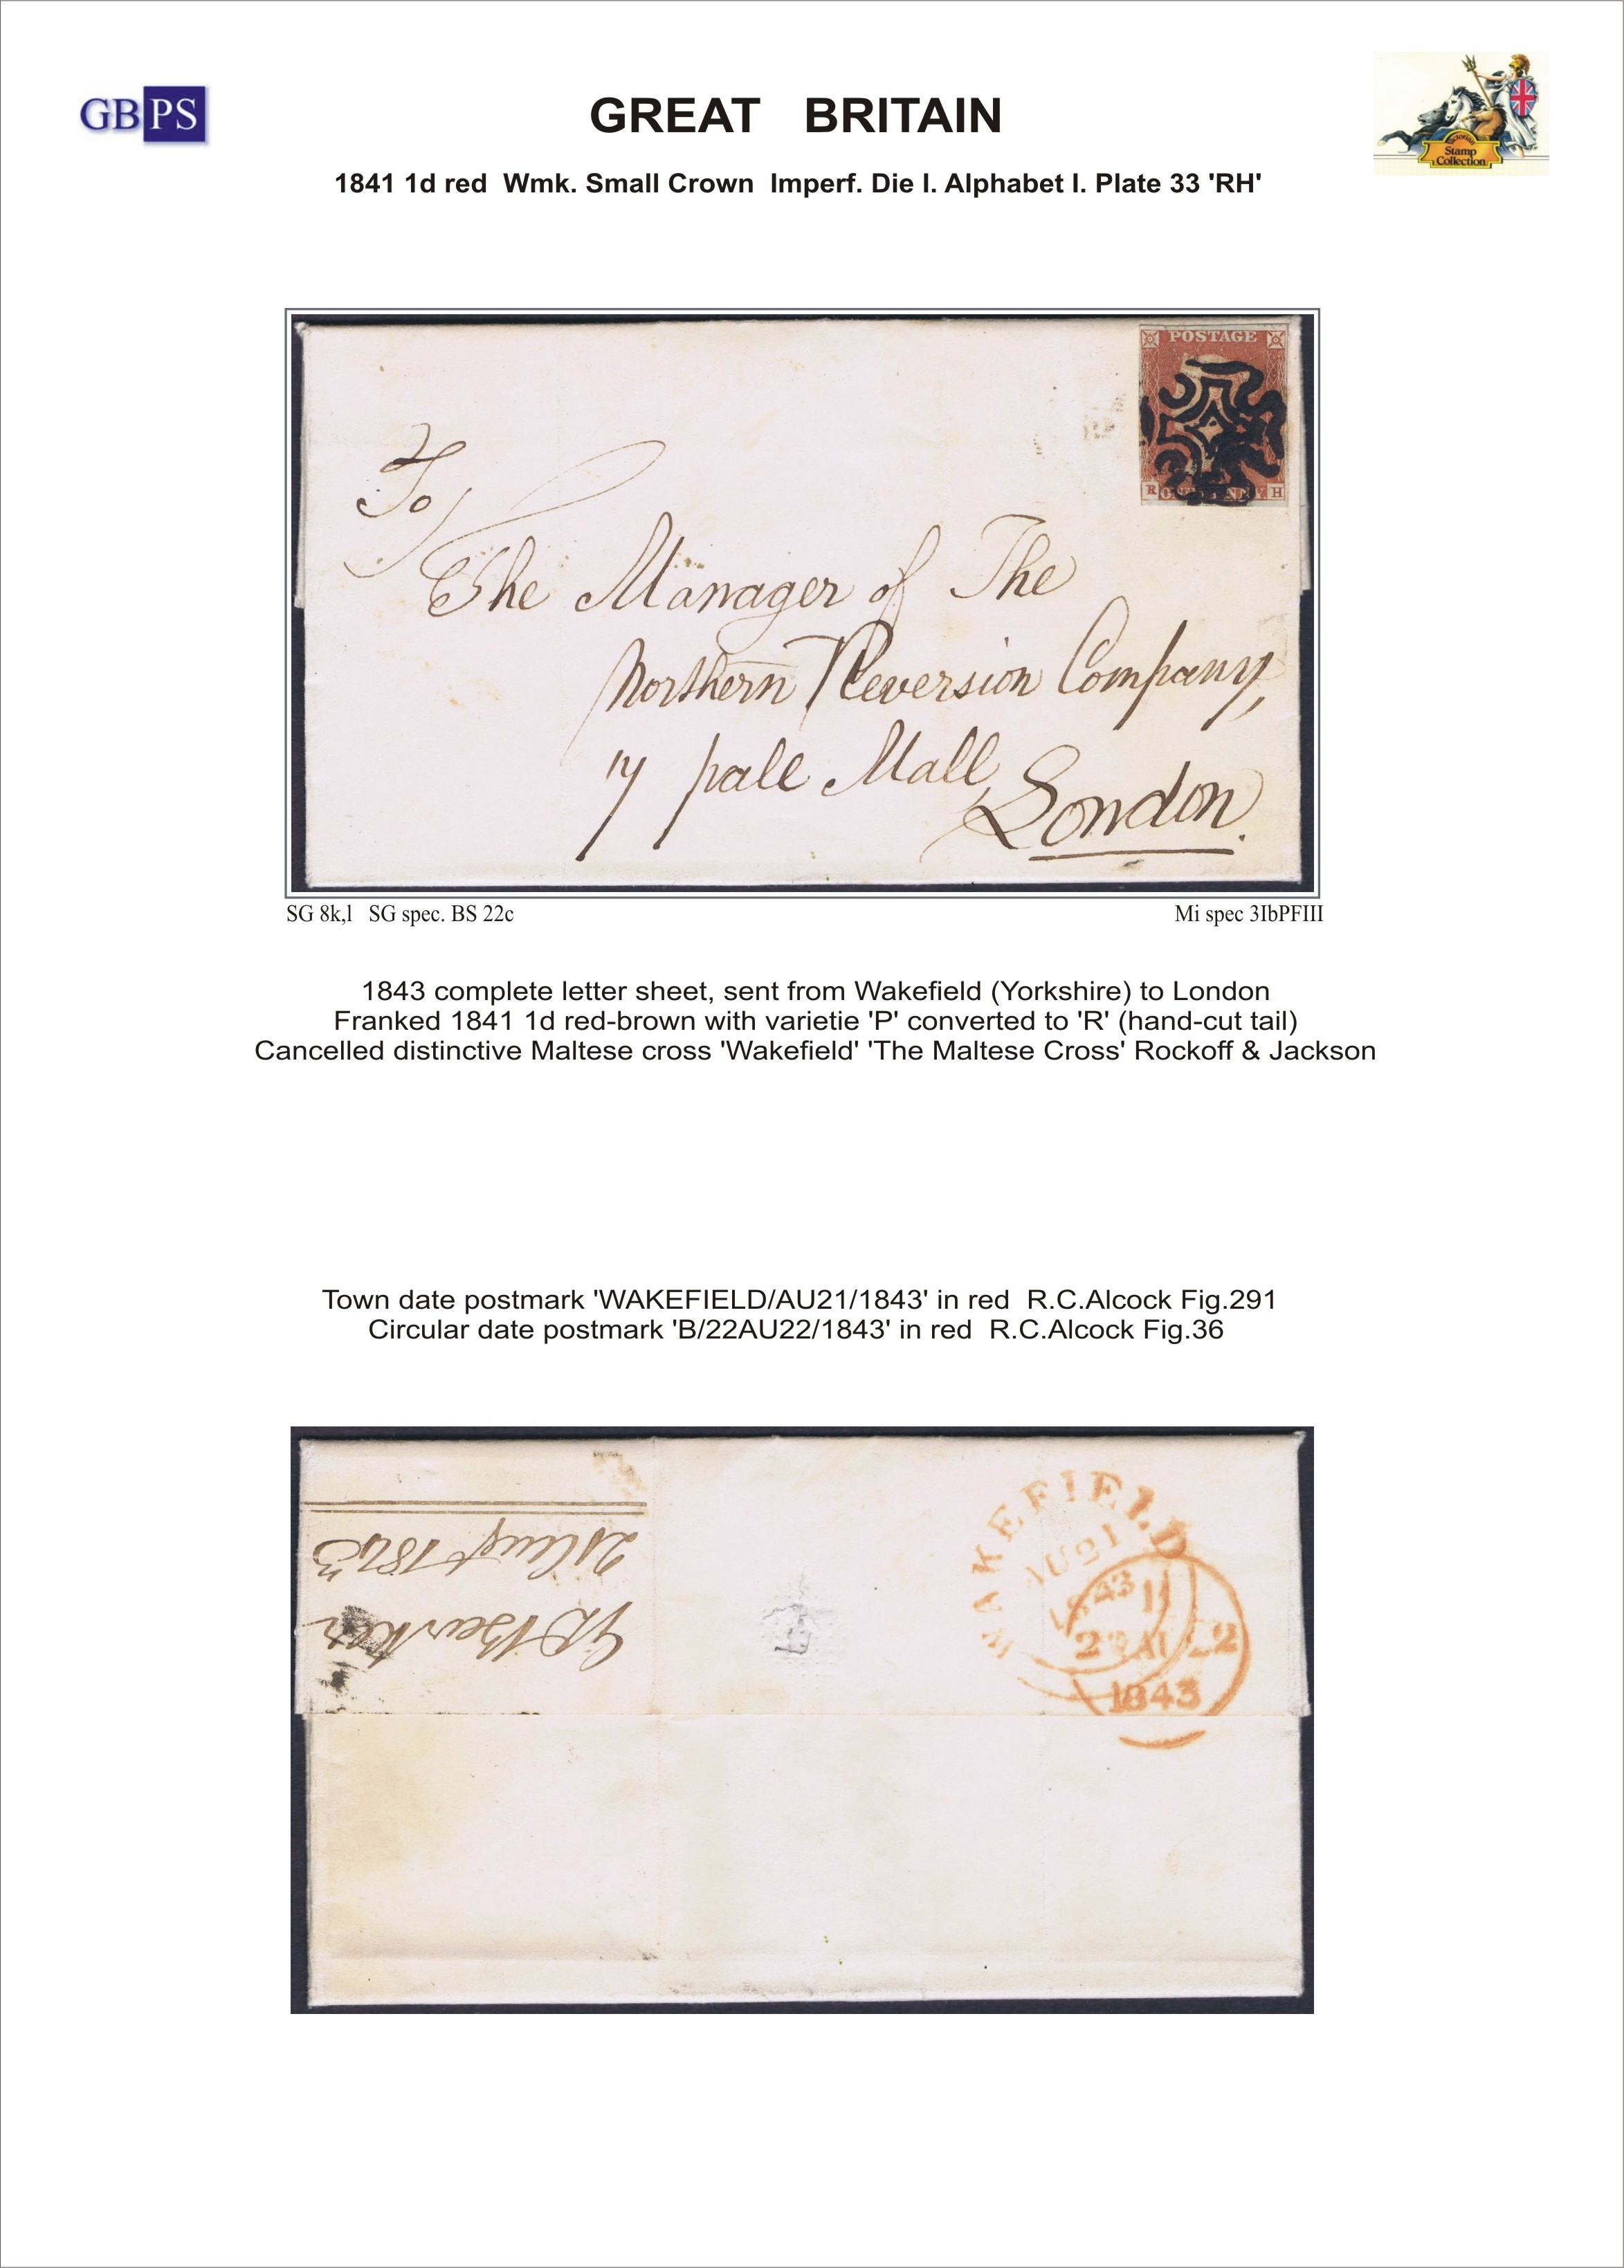 GBPS
GREAT BRITAIN
Victorian
Stamp
Collection
1841 1d red Wmk. Small Crown Imperf. Die I. Alphabet I. Plate 33 'RH'
POSTAGE
R H
To
The Manager of The
Northern Reversion Company,
17 pall Mall,
London.
SG 8k,l SG spec. BS 22c
Mi spec 3IbPFIII
1843 complete letter sheet, sent from Wakefield (Yorkshire) to London
Franked 1841 1d red-brown with varietie 'P' converted to 'R' (hand-cut tail)
Cancelled distinctive Maltese cross 'Wakefield' 'The Maltese Cross' Rockoff & Jackson
Town date postmark 'WAKEFIELD/AU21/1843' in red R.C.Alcock Fig.291
Circular date postmark 'B/22AU22/1843' in red R.C.Alcock Fig.36
WAKEFIELD
AU21
1843
22 AU 22
1843
Barker
21 Augt 1843